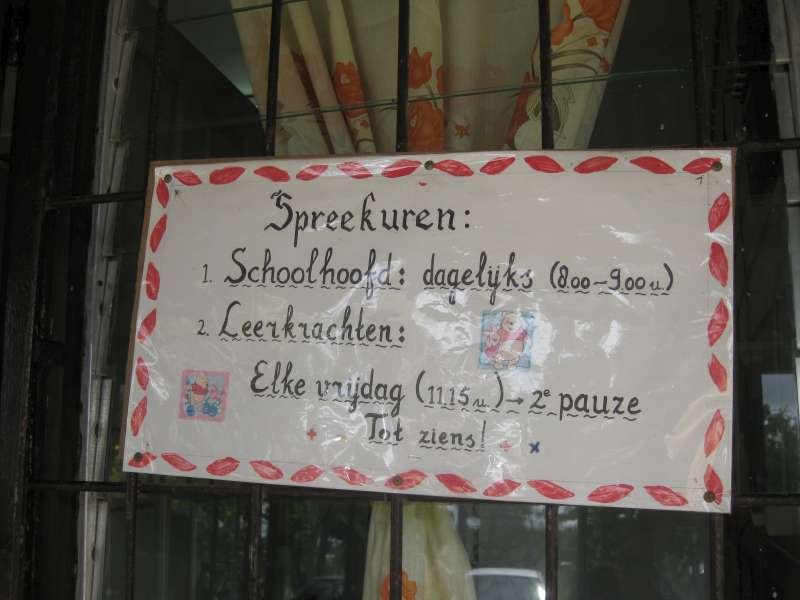 Spreekuren:
1. Schoolhoofd: dagelijks (8.00-9.00 u.)
2. Leerkrachten:
Elke vrijdag (11.15 u.) → 2e pauze
Tot ziens!